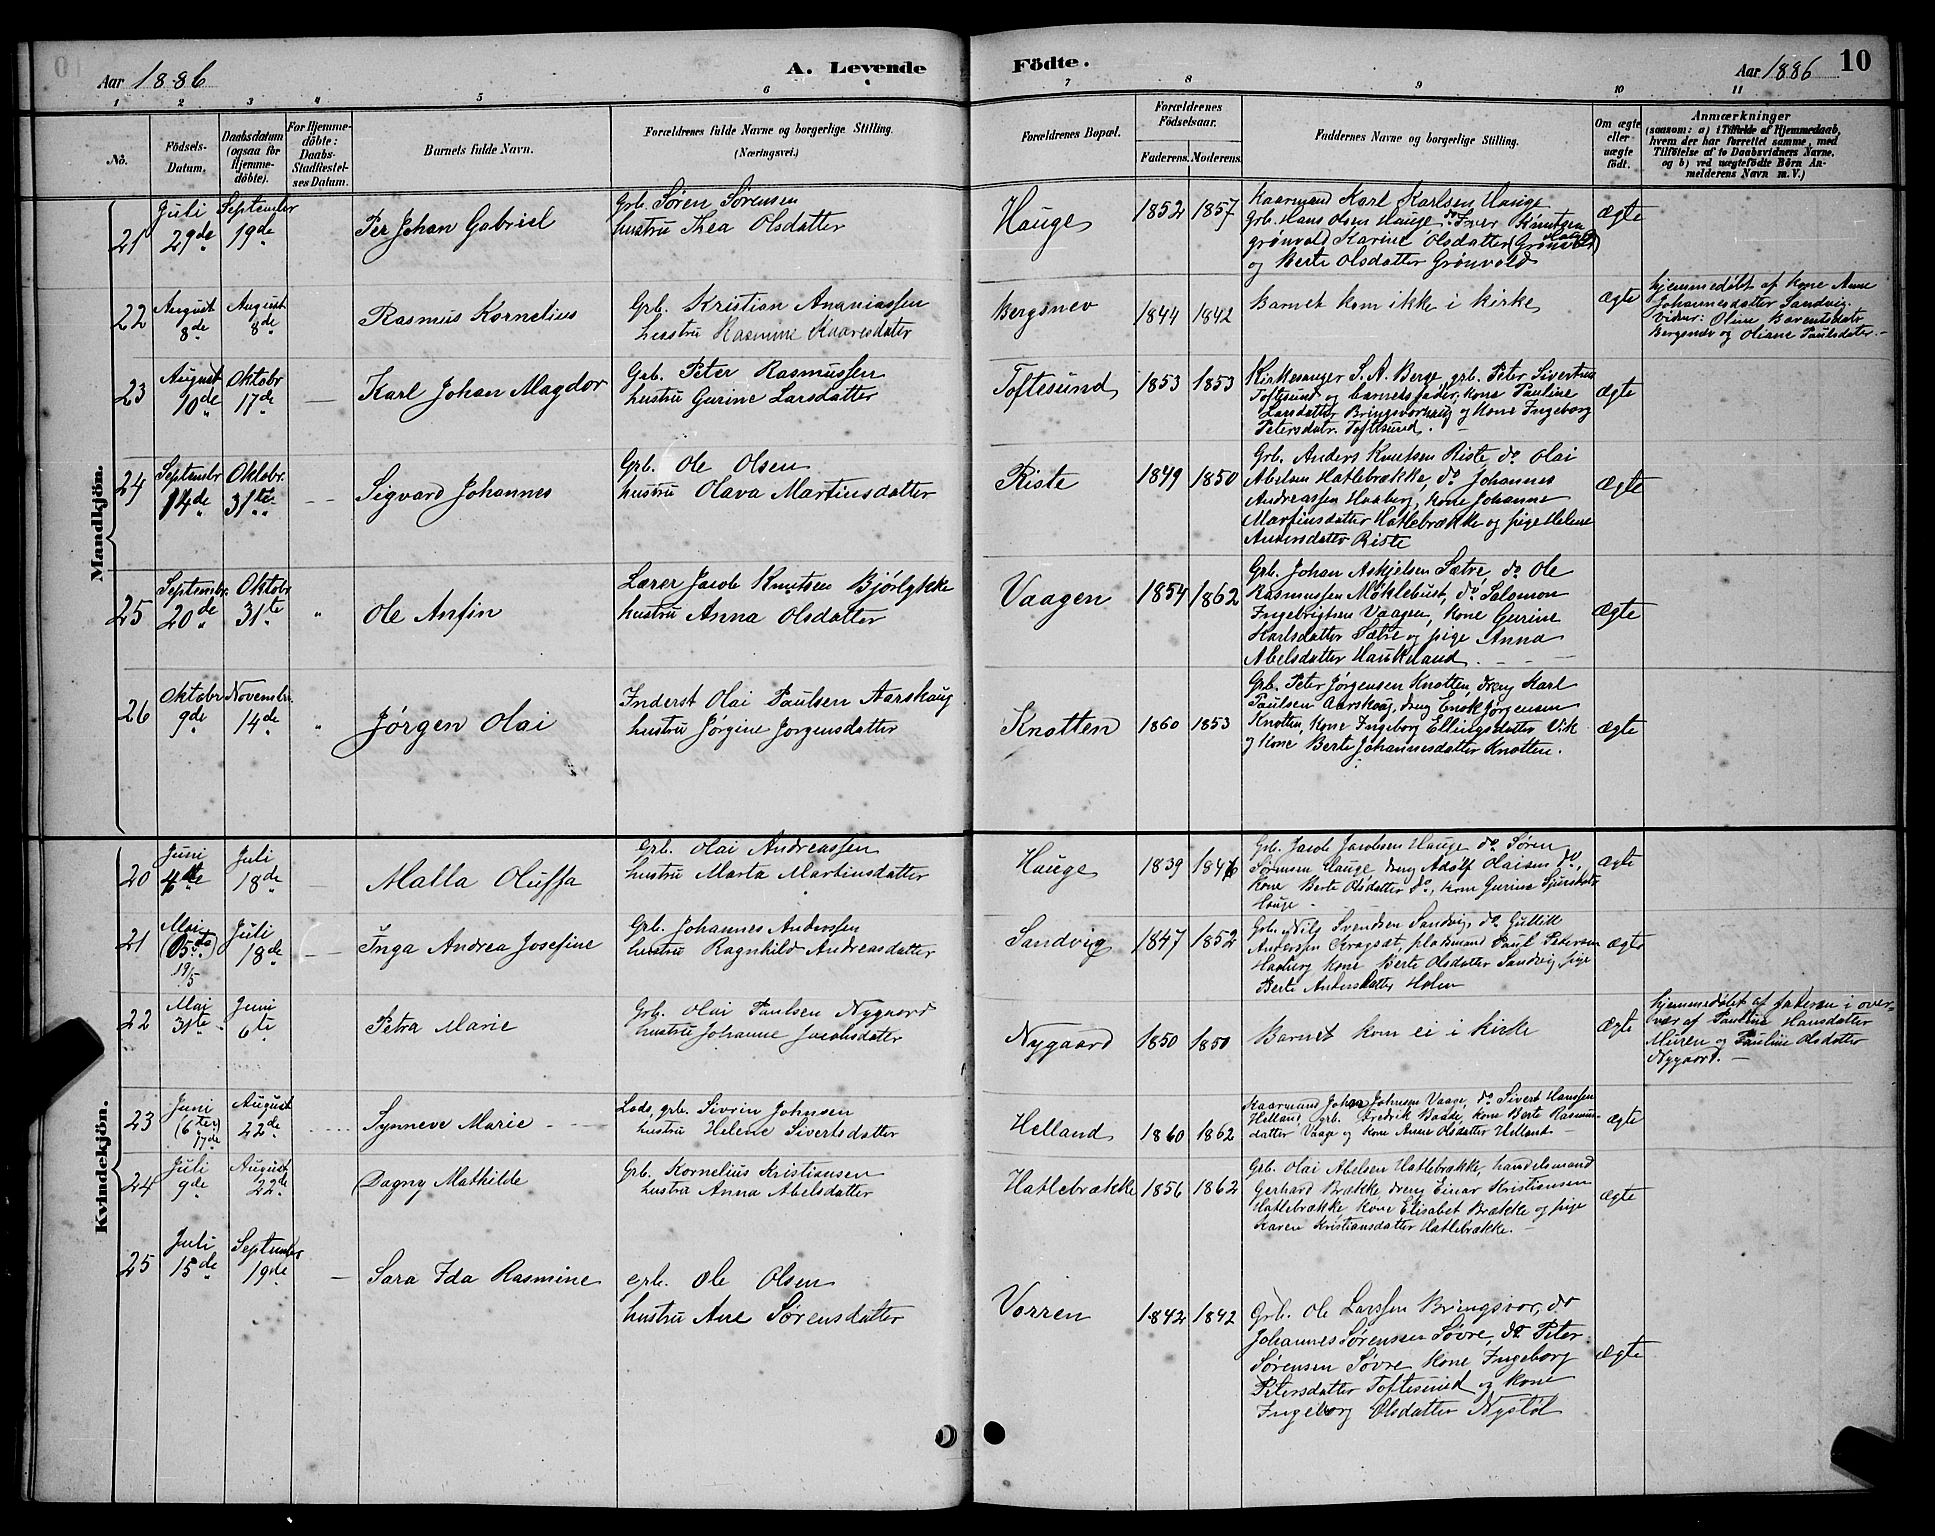 Aar 1886
A. Levende
Födte.
Aar 1886
10
1 2 3 4 5 6 7 8 9 10 11
No.
Födsels-
Datum.
Daabsdatum
(ogsaa for
Hjemme-
döbte).
For Hjemme-
döbte:
Daabs-
Stadfæstel-
ses Datum.
Barnets fulde Navn.
Forældrenes fulde Navne og borgerlige Stilling.
(Næringsvei.)
Forældrenes Bopæl.
Forældrenes
Födselsaar.
Faderens. Moderens.
Faddernes Navne og borgerlige Stilling.
Om ægte
eller
uægte
födt.
Anmærkninger
(saasom: a) i Tilfælde af Hjemmedaab,
hvem der har forrettet samme, med
Tilföielse af to Daabsvidners Navne,
og b) ved uægtefödte Börn An-
melderens Navn m. V.)
Mandkjön.
21
Juli
29de
September
19de
Per Johan Gabriel
Grb. Søren Sørensen
hustru Thea Olsdatter
Hauge
1852 1857
Kaarmand Karl Karlsen Hauge
Grb. Hans Olsen Hauge, do Iver Knutsen
Grønvold Karine Olsdatter
og Berte Olsdatter Grønvold
ægte
22
August
8de
August
8de
Rasmus Kornelius
Grb. Kristian Ananiassen
hustru Rasmine Kaaresdatter
Bergsnev
1844 1842
Barnet kom ikke i kirke
ægte
hjemmedøbt af Kone Ane
Johannesdatter Sandvig.
Vidner: Oline Barentsdatr
Bergsnev og Oliane Paulsdatter.
23
August
10de
Oktobr
17de
Karl Johan Magdor
Grb. Peter Rasmussen
hustru Gurine Larsdatter
Toftesund
1853 1853
Kirkesanger S. A. Berge, grb. Peter Sivertsen
Toftesund og barnets fader, kone Pauline
Larsdatter Bringsvorhaug og Kone Ingeborg
Petersdatr. Toftesund.
ægte
24
Septembr
14de
Oktobr.
31te
Sigvard Johannes
Grb. Ole Olsen
hustru Olava Martinsdatter
Riste
1849 1850
Grb. Anders Knutsen Riste, do Olai
Abelsen Hatlebrække, do Johannes
Andreassen Haaberg, kone Johanne
Martinsdatter Hatlebrække og pige Helene
Andersdatter Riste
ægte
25
Septembr.
20de
Oktobr
31te
Ole Anfin
Lærer Jacob Knutsen Bjørlykke
hustru Anna Olsdatter
Vaagen
1854 1862
Grb. Johan Askjelsen Sætre, do Ole
Rasmussen Møklebust, do Salomon
Ingebrigtsen Vaagen, kone Gurine
Karlsdatter Sætre og pige Anna
Abelsdatter Haukeland.
ægte
26
Oktobr
9de
Novembr.
14de
Jørgen Olai
Inderst Olai Paulsen Aarskaug
hustru Jørgine Jørgensdatter
Knotten
1860 1853
Grb. Peter Jørgensen Knotten, dreng Karl
Paulsen Aarskaug, dreng Enok Jørgensen
Knotten, kone Ingeborg Ellingsdatter Vik
og kone Berte Johannesdatter Knotten.
ægte
Kvindekjön.
20
Juni
4de
Juli
18de
Malla Oluffa
Grb. Olai Andreassen
hustru Marta Martinsdatter
Hauge
1839 1846
Grb. Jacob Jacobsen Hauge do Søren
Sørensen Hauge, dreng Adolf Olaisen do,
kone Berte Olsdatter do, kone Gurine
Hauge
ægte
21
Mai
19/5
Juli
18de
Inga Andrea Josefine
Grb. Johannes Anderssen
hustru Ragnhild Andreasdatter
Sandvig
1847 1852
Grb. Nils Svendsen Sandvig, do Gullik
Anderssen, pladsmand Paul Pedersen
Haaberg Kone Berte Olsdatter Sandvig, pige
Berte Andersdatter Holen
ægte
22
Mai
31te
Juni
6te
Petra Marie
Grb. Olai Paulsen Nygaard
hustru Johanne Jacobsdatter
Nygaard
1850 1850
Barnet kom ei i kirke
ægte
hjemmedøbt af faderen i over-
vær af Pauline Hansdatter
Muren og Pauline Olsdatter
Nygaard.
23
Juni
17de
August
22de
Synneve Marie
Lods, grb. Sivrin Johnsen
hustru Helene Sivertsdatter
Helland
1860 1862
Kaarmand Johan Johnsen Vaage, do Sivert Hanssen
Helland, grb. Fredrik Baade, kone Berte Rasmus-
datter Vaage og kone Anne Olsdatter Helland
ægte
24
Juli
9de
August
22de
Dagny Mathilde
Grb. Kornelius Kristiansen
hustru Anna Abelsdatter
Hatlebrække
1856 1862
Grb. Olai Abelsen Hatlebrække, handelsmand
Gerhard Brække, dreng Einar Kristiansen
Hatlebrække, kone Elisabet Brække og pige
Karen Kristiansdatter Hatlebrække.
ægte
25
Juli
15de
Septembr
19de
Sara Ida Rasmine
Grb. Ole Olsen
hustru Ane Sørensdatter
Vorren
1842 1842
Grb. Ole Larssen Bringsvor, do
Johannes Sørensen Søvre, do Peter
Sørensen Søvre kone Ingeborg
Petersdatter Toftesund og kone
Ingeborg Olsdatter Nystøl
ægte